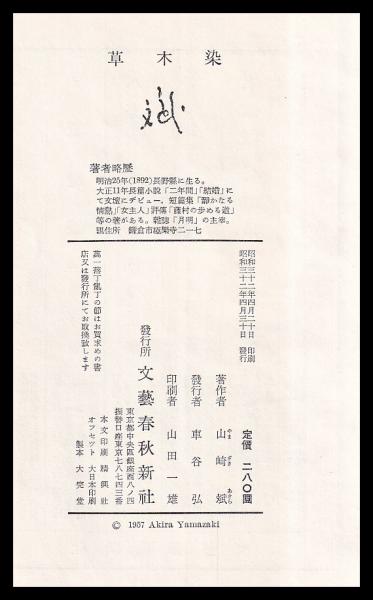 草木染
斌
著者略歴
明治25年(1892)長野縣に生る。
大正11年長篇小説「二年間」「結婚」に
て文壇にデビュー，短篇集「靜かなる
情熱」「女主人」評傳「藤村の歩める道」
等の著がある。雜誌「月明」の主宰。
現住所 鎌倉市極樂寺二一七
昭和三十二年四月二十日 印刷
昭和三十二年四月三十日 發行
定價 二八〇圓
著作者 山崎斌
やま ざき あきら
發行者 車谷弘
印刷者 山田一雄
發行所 文藝春秋新社
東京都中央區銀座西八ノ四
振替口座東京七八七四三番
本文印刷 精興社
オフセット 大日本印刷
製本 大完堂
萬一落丁亂丁の節はお買求めの書
店又は發行所にてお取換致します
© 1957 Akira Yamazaki